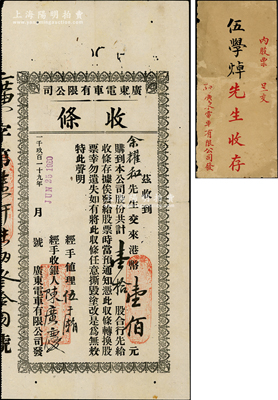 上海陽明拍賣
廣東電車有限公司
收條
茲收到
余雄叔先生交來港幣壹佰元
購到本公司股份共計壹拾股合行先給
收條存據俟發給股票時當預通知憑此收條轉換股
票幸勿遺失如有將此收條任意撕毀塗改是為無效
特此聲明
經手值理伍于籍
經手收銀人陳廣慶
一千玖百二十九年 月 號
廣東電車有限公司發
內股票 呈交
伍學焯先生收存
廣東電車有限公司發